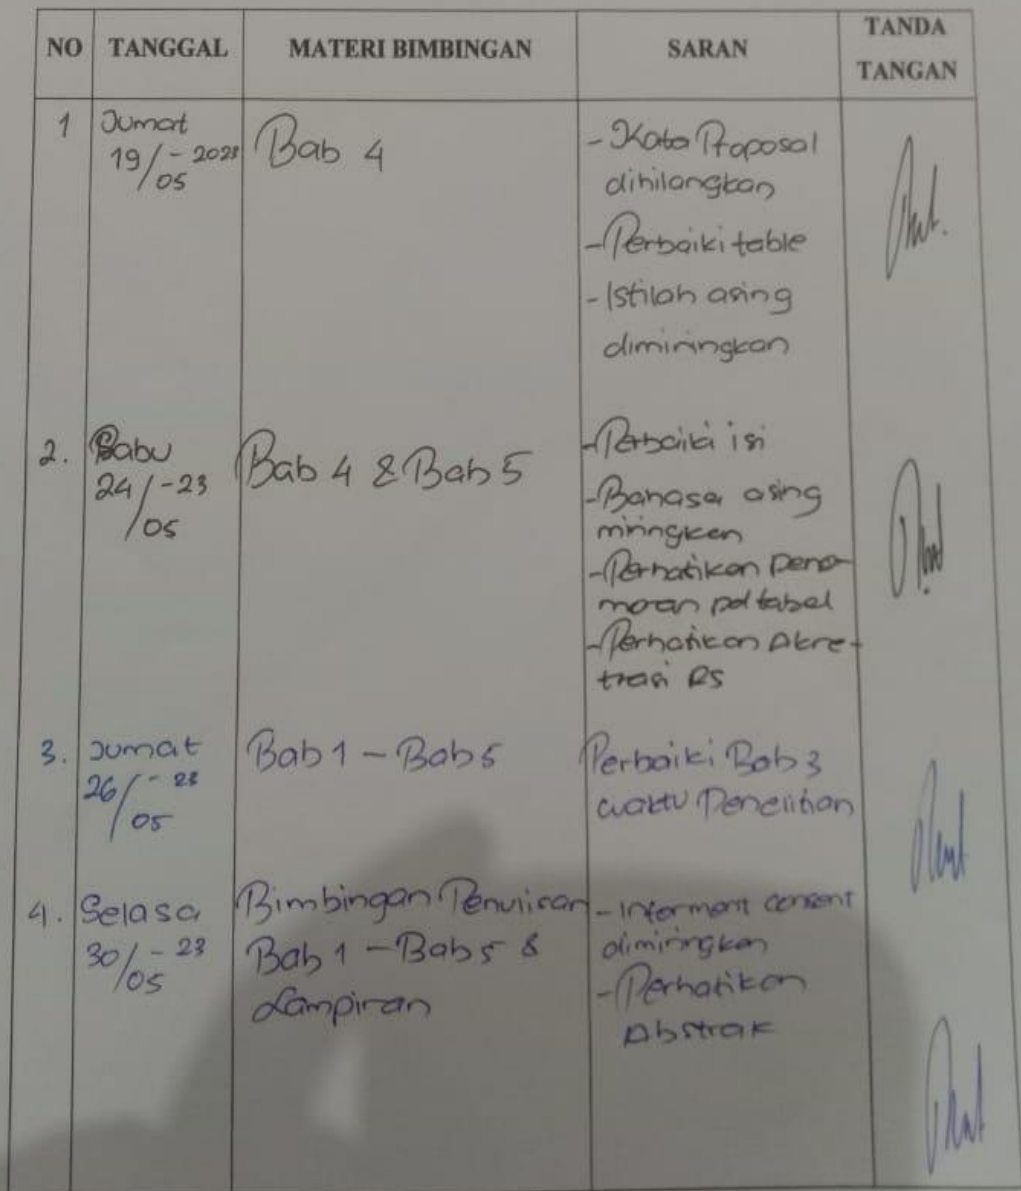 NO TANGGAL MATERI BIMBINGAN SARAN TANDA TANGAN
1 Jumat 19/05-2023
Bab 4
- Kata Proposal
dihilangkan
- Perbaiki table
- Istilah asing
dimiringkan
2. Rabu 24/05-23
Bab 4 & Bab 5
- Perbaiki isi
- Bahasa asing
miringkan
- Perhatikan Peno-
moran pd tabel
- Perhatikan Akre-
trasi RS
3. Jumat 26/05-23
Bab 1 - Bab 5
Perbaiki Bab 3
waktu Penelitian
4. Selasa 30/05-23
Bimbingan Penulisan
Bab 1 - Bab 5 &
Lampiran
- Informent consent
dimiringkan
- Perhatikan
Abstrak